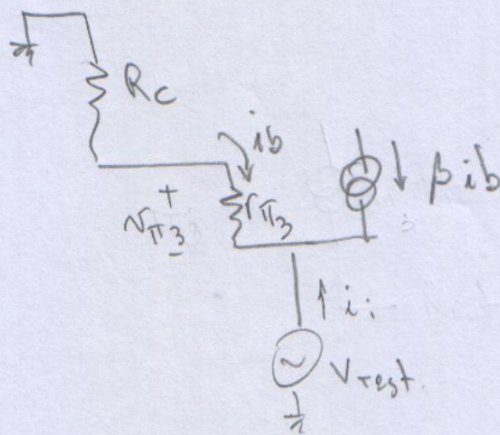 Rc
ib
+
Vπ3
-
rπ3
β ib
ii
~
Vtest.